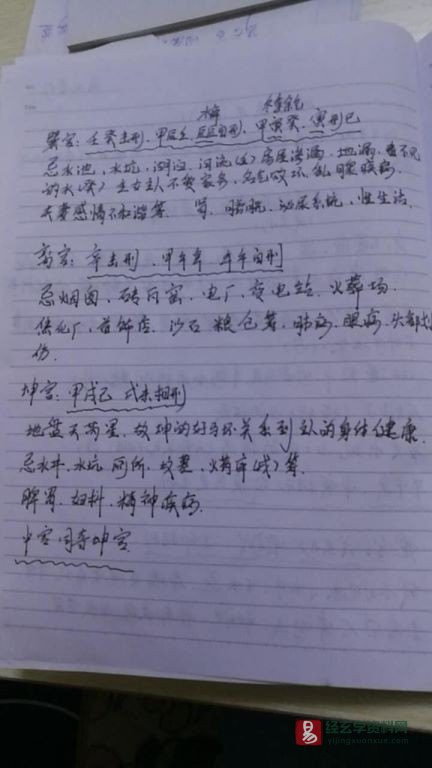 巽宫：壬癸击刑、甲辰壬 辰辰自刑、甲寅癸、寅刑巳
忌水池，水坑，湖泊，河流(壬)房屋渗漏，地漏，看不见
的水(癸) 主女主人不爱家务，名色败坏，乱
夫妻感情不和谐等。 胃，膀胱，泌尿系统，性生活。
离宫：辛击刑、甲午辛 午午自刑
忌烟囱，砖瓦窑，电厂，变电站，火葬场。
炼化厂，首饰店，沙石 粮仓等，肺病，眼病，头部
伤。
坤宫：甲戌己 戌未相刑
地盘天芮星，故坤的好与坏关系到人的身体健康。
忌水井，水坑，厕所，坟墓，(戌)等。
脾胃，妇科，精神疾病。
中宫同寄坤宫
易 经玄学资料网
yijingxuanxue.com